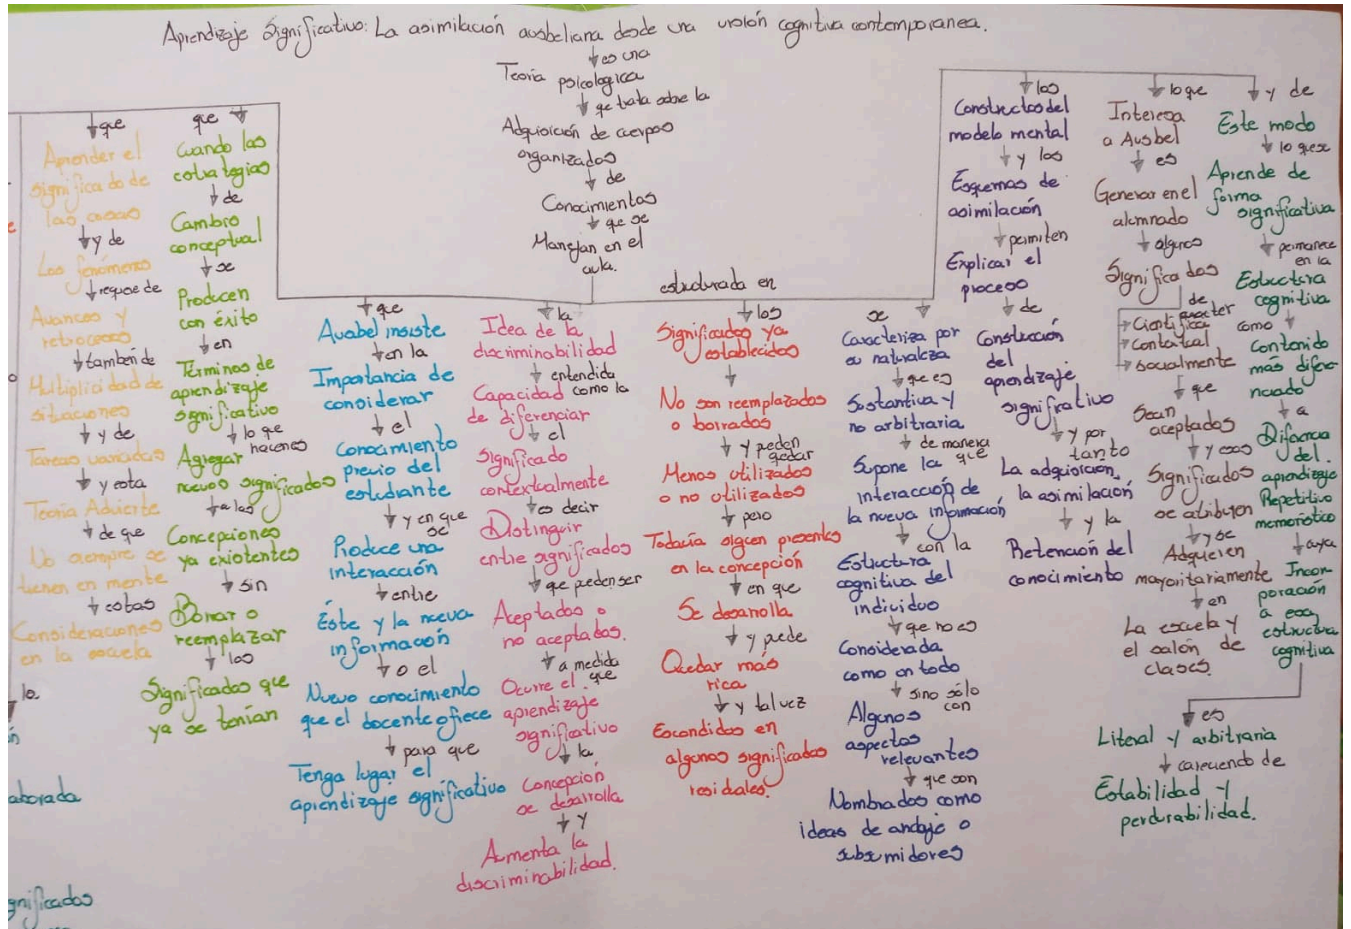 Aprendizaje Significativo: La asimilación ausbeliana desde una visión cognitiva contemporanea.
es una
Teoría psicologica
qe trata sobre la
Adquisición de cuerpos
organizados
de
Conocimientos
que se
Manejan en el
aula.
estructurada en
que
Aprender el
significado de
las cosas
y de
Los fenómenos
requiere de
Avances y
retrocesos
también de
Multiplicidad de
situaciones
y de
Tareas variadas
y esta
Teoría Advierte
de que
No siempre se
tienen en mente
estas
Consideraciones
en la escuela
que
Cuando las
estrategias
de
Cambio
conceptual
se
Producen
con éxito
en
Términos de
aprendizaje
significativo
lo que
hacemos
Agregar
nuevos significados
a las
Concepciones
ya existentes
sin
Borrar o
reemplazar
los
Significados que
ya se tenían
que
Ausbel insiste
en la
Importancia de
considerar
el
Conocimiento
previo del
estudiante
y en que
se
Produce una
interacción
entre
Éste y la nueva
información
o el
Nuevo conocimiento
que el docente ofrece
para que
Tenga lugar el
aprendizaje significativo
la
Idea de la
discriminabilidad
entendida
como la
Capacidad
de diferenciar
el
Significado
contextualmente
es decir
Distinguir
entre significados
que pueden ser
Aceptados o
no aceptados.
a medida
que
Ocurre el
aprendizaje
significativo
la
Concepción
se desarrolla
y
Aumenta la
discriminabilidad.
los
Significados ya
establecidos
No son reemplazados
o borrados
y pueden
quedar
Menos utilizados
o no utilizados
pero
Todavía siguen presentes
en la concepción
en que
Se desarrolla
y puede
Quedar más
rica
y tal vez
Escondidos en
algunos significados
residuales.
se
Caracteriza por
su naturaleza
que es
Sustantiva y
no arbitraria
de manera
que
Supone la
interacción de
la nueva información
con la
Estructura
cognitiva del
individuo
que no es
Considerada
como un todo
sino sólo
con
Algunos
aspectos
relevantes
que son
Nombrados como
ideas de anclaje o
subsumidores
los
Constructos del
modelo mental
y los
Esquemas de
asimilación
permiten
Explicar el
proceso
de
Construcción
del
aprendizaje
significativo
y por
tanto
La adquisición,
la asimilación
y la
Retención del
conocimiento
lo que
Interesa
a Ausbel
es
Generar en el
alumnado
algunos
Significados
de
caracter
Científica
contextual
socialmente
que
Sean
aceptados
y esos
Significados
se atribuyen
y se
Adquieren
mayoritariamente
en
La escuela y
el salón de
clases.
y de
Este modo
lo que se
Aprende de
forma
significativa
permanece
en la
Estructura
cognitiva
como
contenido
más diferen
ciado
a
Diferencia
del
aprendizaje
Repetitivo
memorístico
cuya
Incor
poración
a esa
estructura
cognitiva
es
Literal y arbitraria
careciendo de
Estabilidad y
perdurabilidad.
la
aborada
gnificados